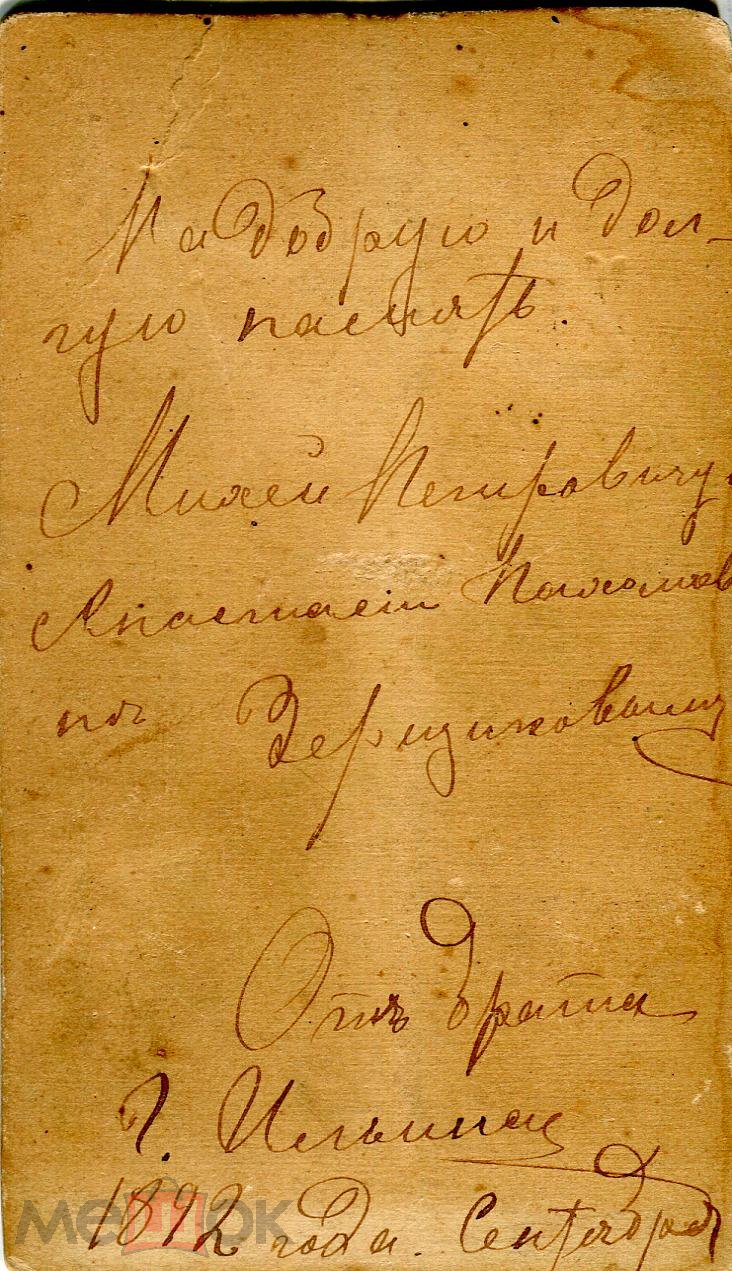 На добрую и дол-
гую память.
Михею Петровичу
Анастасiи Пахомов
на Зерщиковани
Отъ брата
Г. Ильина
1892 года. Сентября
мешок